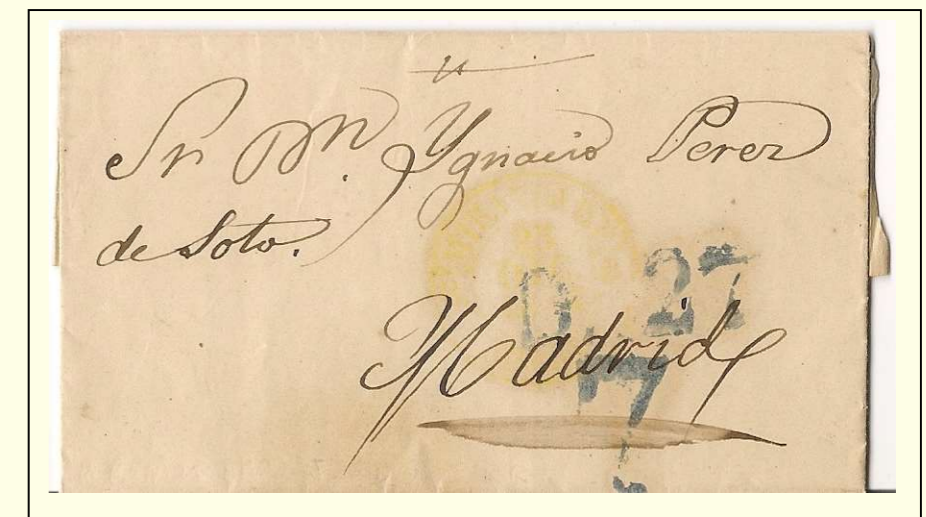 Sr Dn. Ygnacio Perez
de Soto.
27
Madrid
7